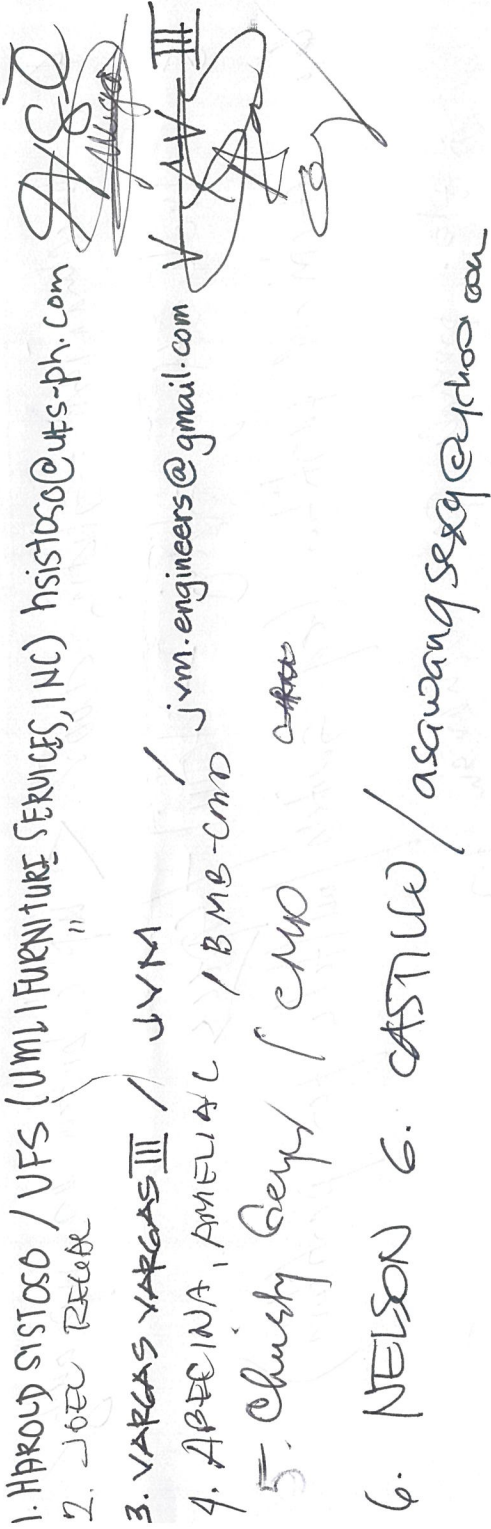 1. HAROLD SISTOSO / UFS (UMLIFURNITURE SERVICES, INC) hsistoso@ufs-ph.com
2. JOEL "
3. VARGAS VARGAS III / JVM / jvm.engineers@gmail.com
4. ABECINA, AMELIA C / BMB-CMD
5. Christy / CMD
6. NELSON G. CASTILLO / asawangsexy@yahoo.com